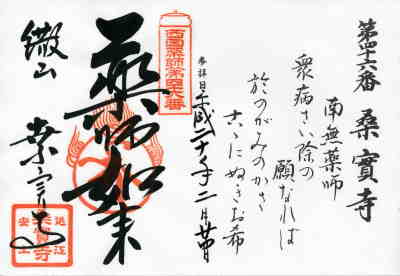 第四十六番 桑實寺
南無薬師
衆病さい除の
願なれは
於のがみのかさ
こゝにぬぎお希
参拝日 平成二十年二月
西国薬師第四十六番
薬師如来
繖山 桑實寺
近江
桑實寺
安土